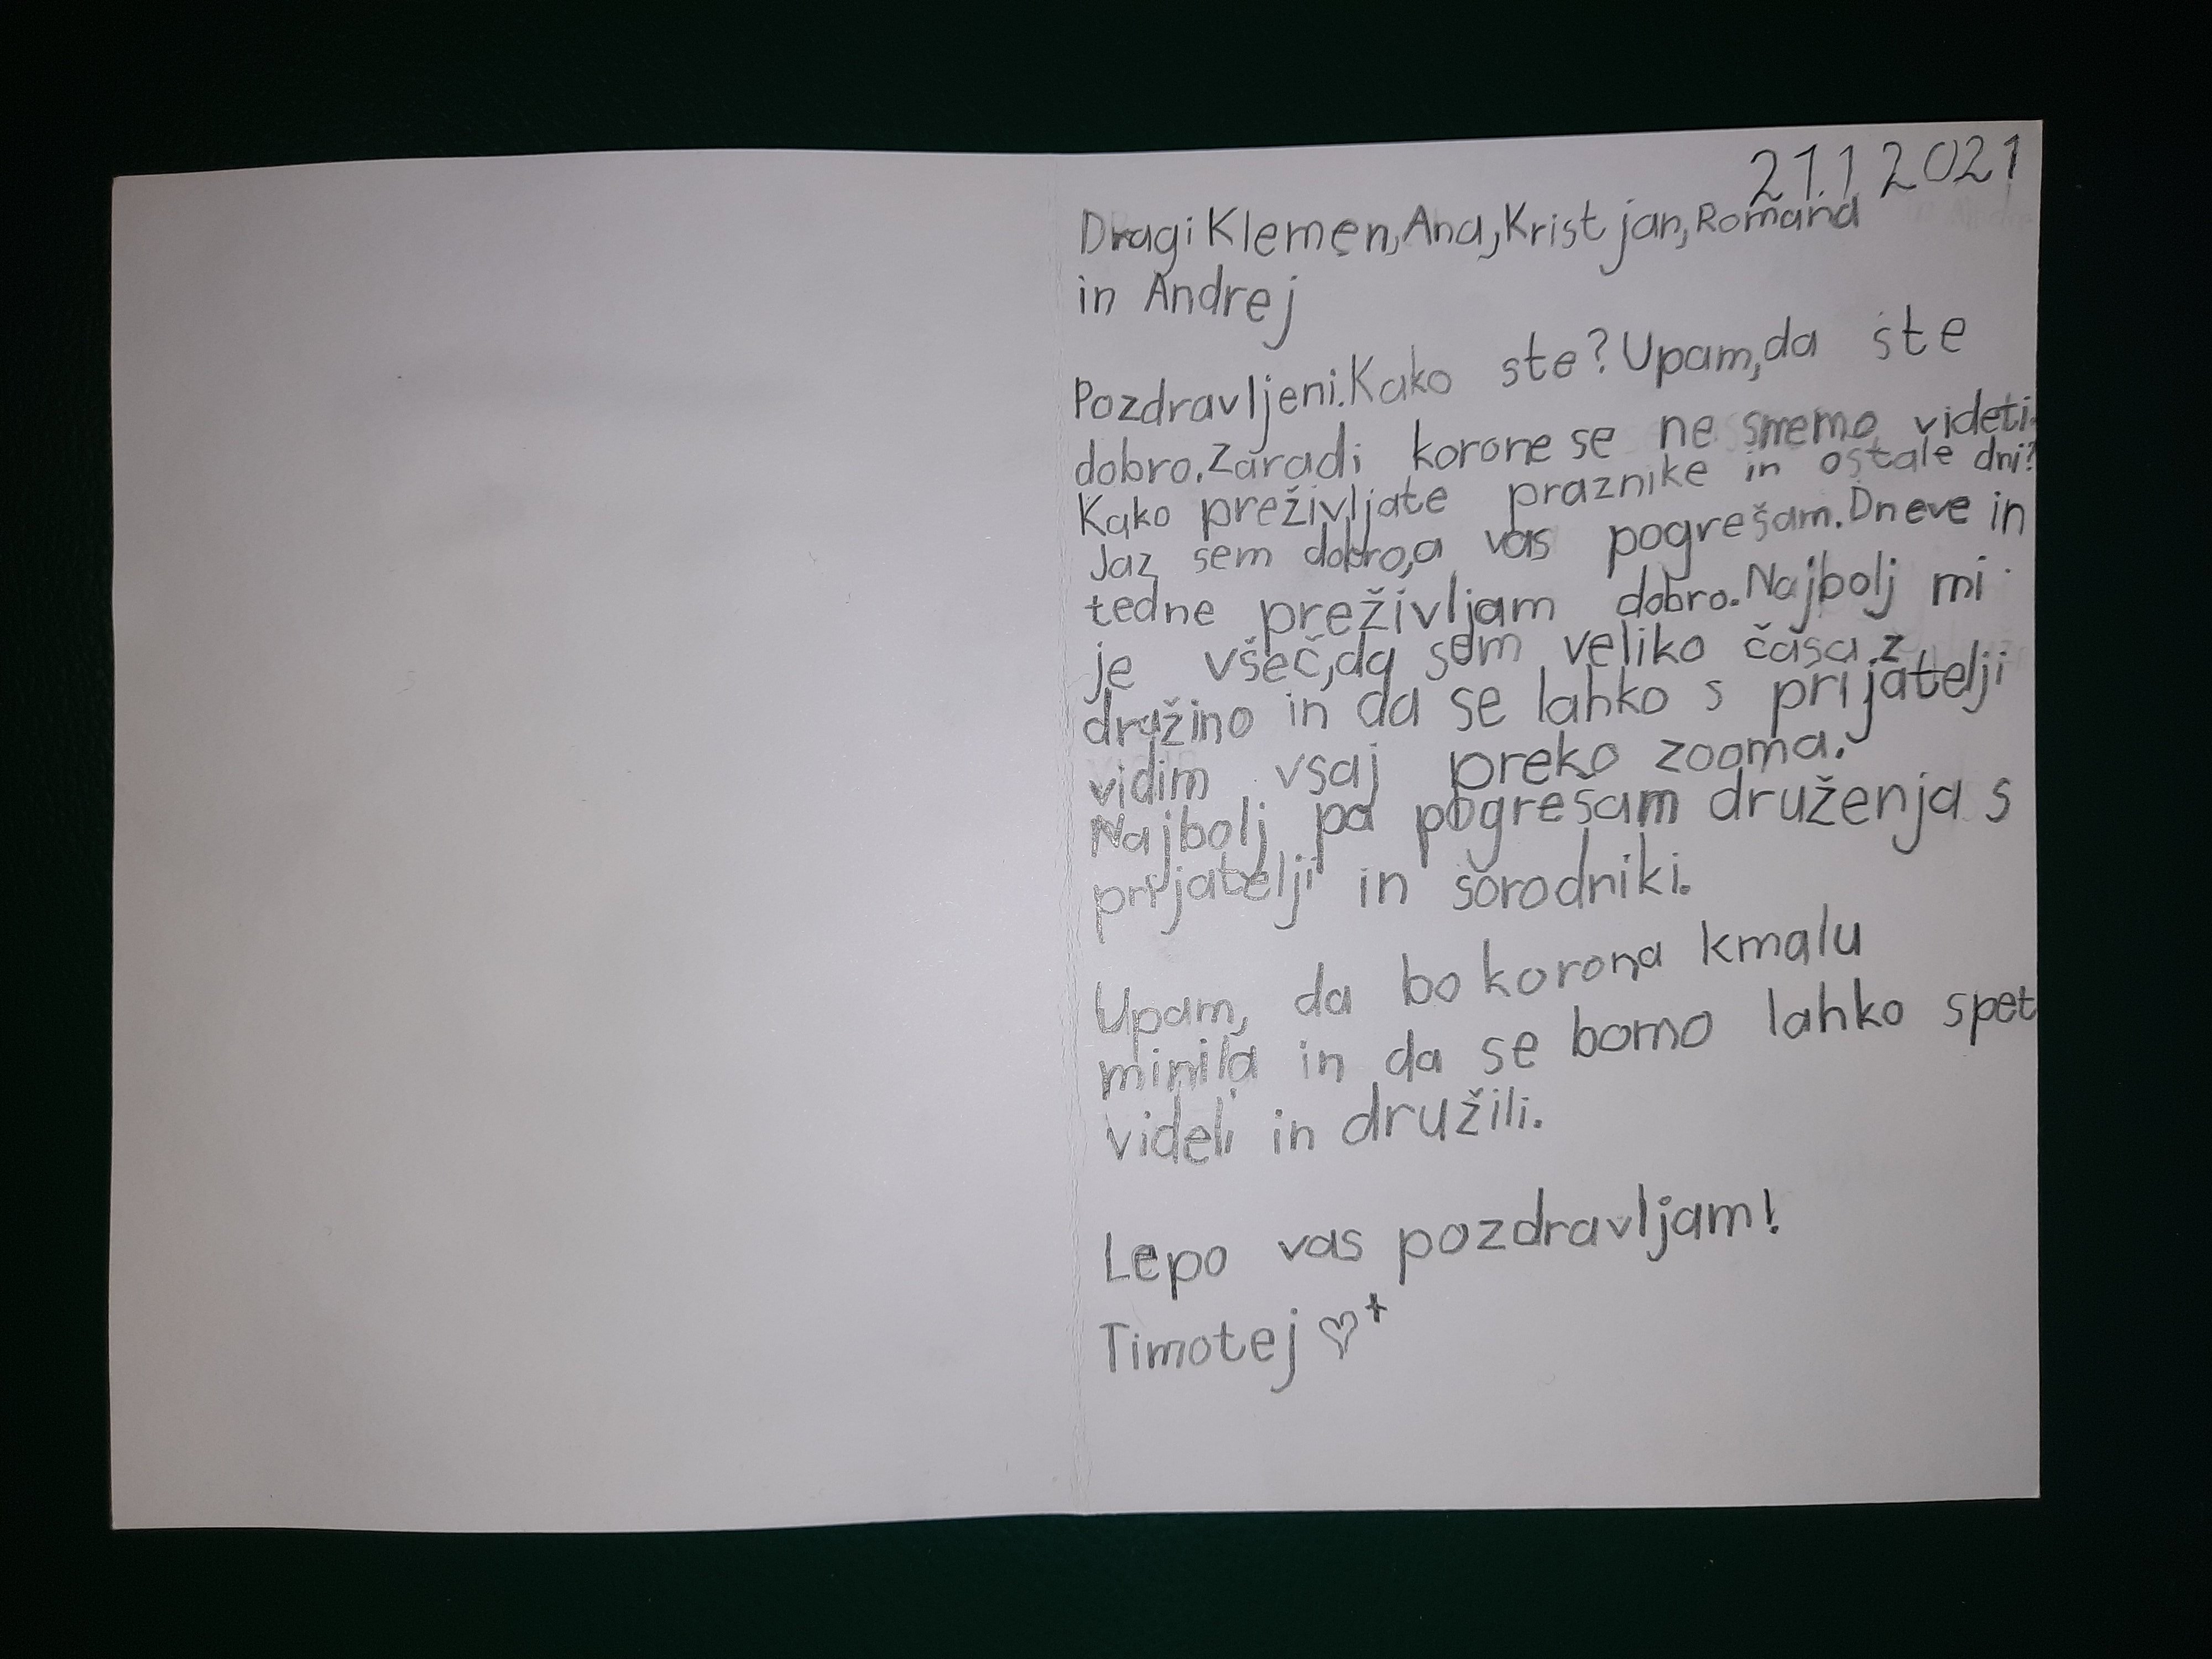 21.1 2021
Dragi Klemen, Ana, Kristjan, Romana
in Andrej
Pozdravljeni. Kako ste? Upam, da ste
dobro. Zaradi korone se ne smemo videti.
Kako preživljate praznike in ostale dni?
Jaz sem dobro, a vas pogrešam. Dneve in
tedne preživljam dobro. Najbolj mi
je všeč, da sem veliko časa z
družino in da se lahko s prijatelji
vidim vsaj preko zooma.
Najbolj pa pogrešam druženja s
prijatelji in sorodniki.
Upam, da bo korona kmalu
minila in da se bomo lahko spet
videli in družili.
Lepo vas pozdravljam!
Timotej ♡+